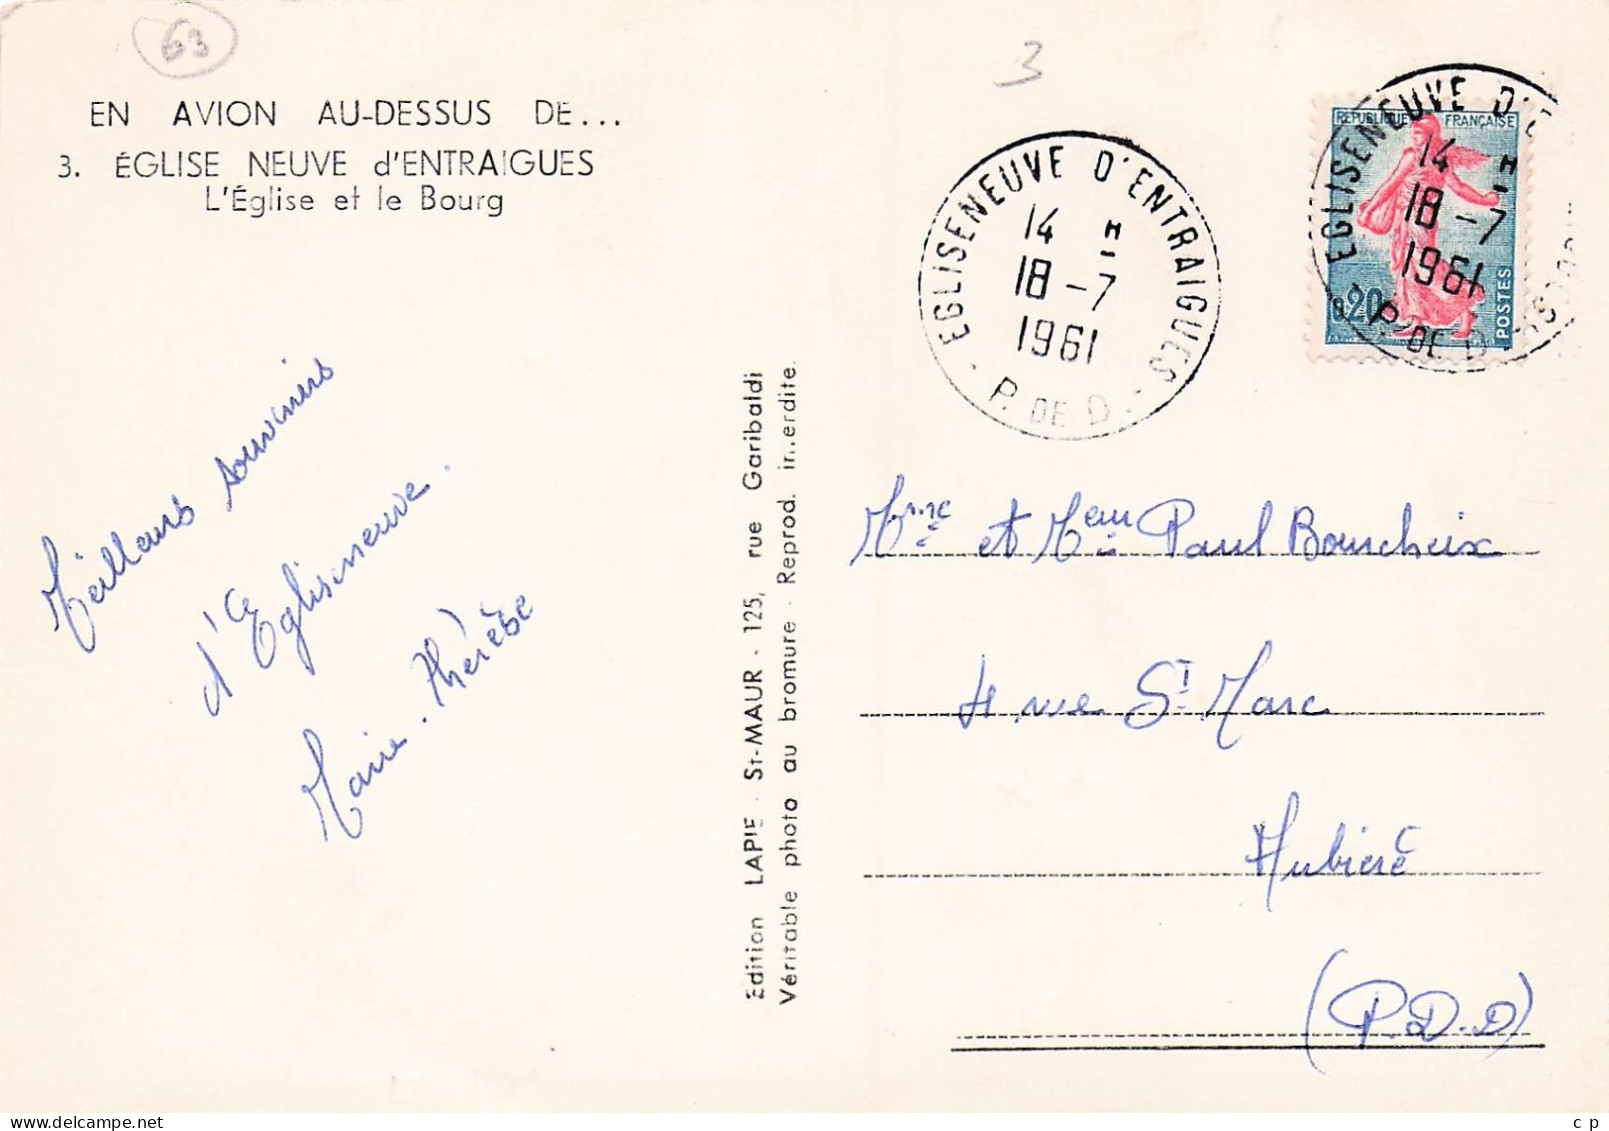 63
3
EN AVION AU-DESSUS DE...
3. ÉGLISE NEUVE d'ENTRAIGUES
L'Église et le Bourg
Meilleurs souvenirs
d'Egliseneuve.
Marie-Thérèse
Edition LAPIE - St-MAUR - 125, rue Garibaldi
Véritable photo au bromure - Reprod. interdite.
EGLISENEUVE D'ENTRAIGUES
14 H
18-7
1961
P. DE D.
REPUBLIQUE FRANÇAISE
0,20
POSTES
EGLISENEUVE D'
14 H
18-7
1961
P. DE D
Mme et Mr Paul Boucheix
4 rue St Marc
Aubière
(P.D.D)
c p